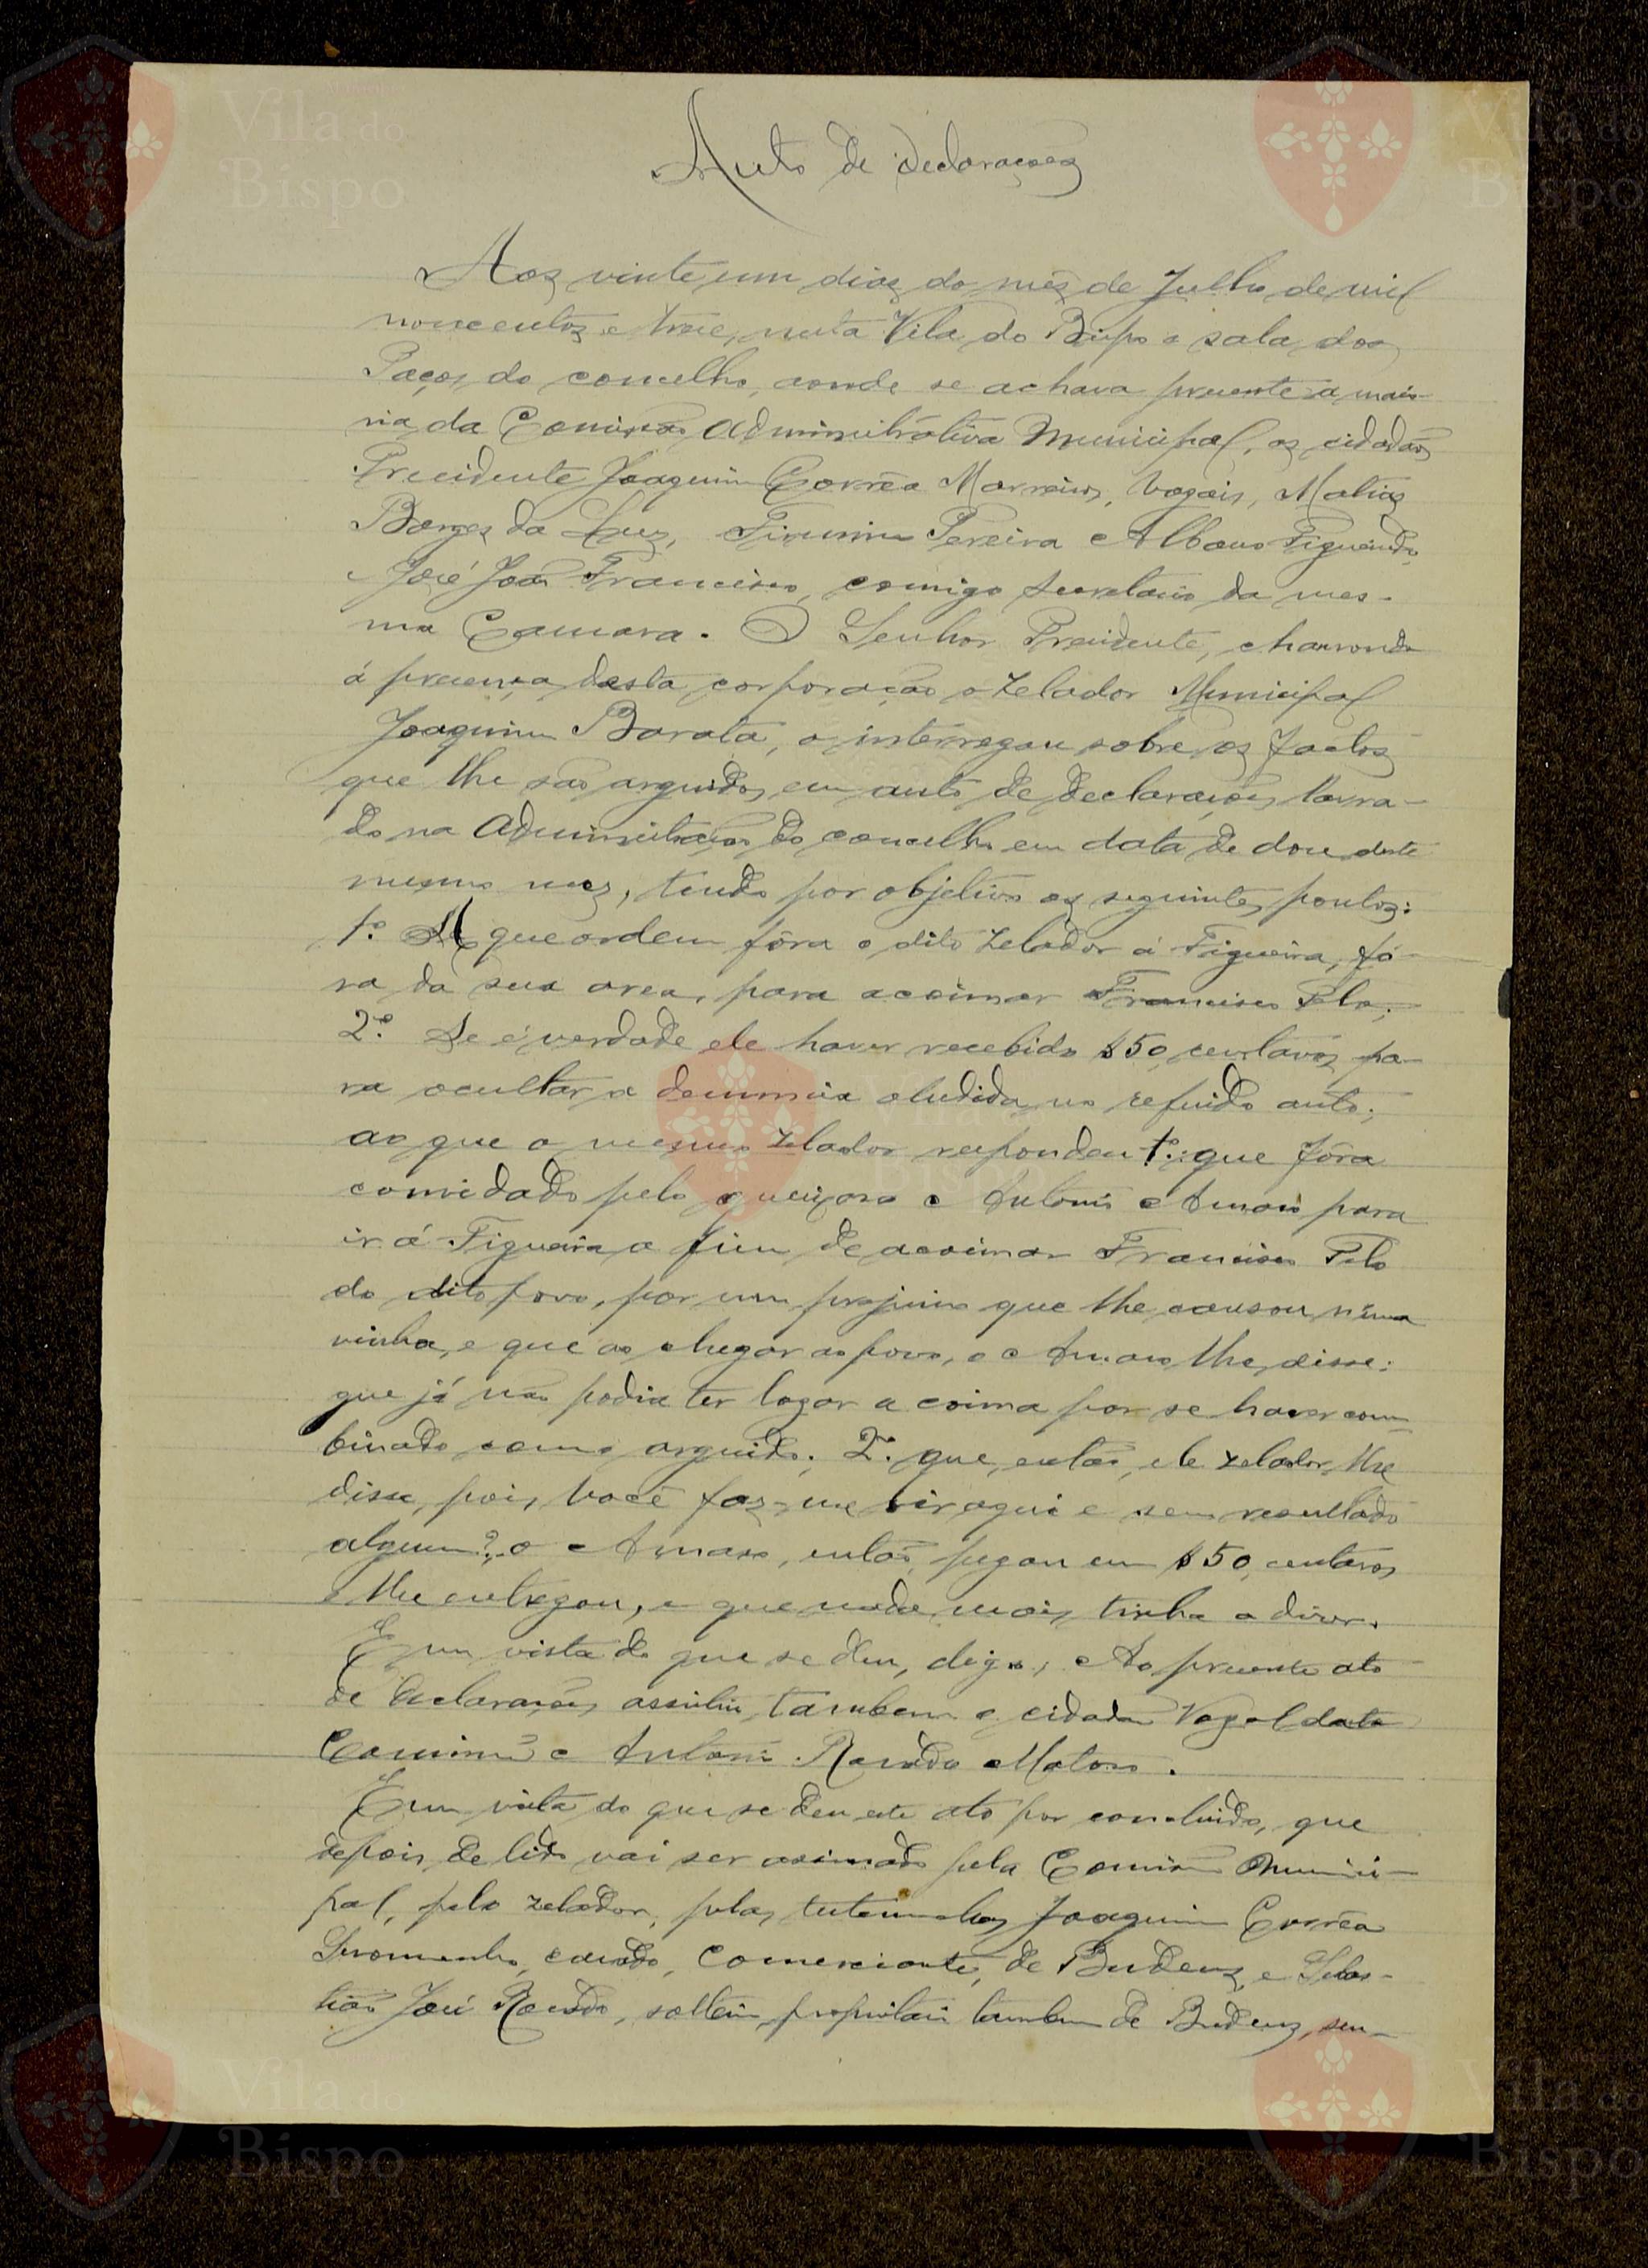 Auto de declarações
Aos vinte um dias do mês de Julho de mil
novecentos e treze, nesta Vila do Bispo e sala dos
Paços do concelho, aonde se achava presente a maio-
ria da Comissão Administrativa Municipal, os cidadãos
Precidente Joaquim Corrêa Marreiros, Vogais, Matias
Borges da Luz, Firmino Pereira e Albano Figueiredo,
José João Francisco, comigo Secretario da mes-
ma Camara. O Senhor Presidente, chamando
á presença desta corporação o zelador Municipal
Joaquim Barata, o interrogou sobre os factos
que lhe são arguidos em auto de declarações lavra-
do na Administração do concelho em data de doze deste
mesmo mez, tendo por objetivo os seguintes pontos:
1º. A que ordem fôra o dito zelador á Figueira, fó-
ra da sua area, para acoimar Francisco Pelo;
2º. Se é verdade ele haver recebido $50 centavos pa-
ra ocultar a denuncia aludida no referido auto;
ao que o mesmo zelador respondeu 1º: que fôra
convidado pelo queixoso Antonio Amaro para
ir á Figueira a fim de acoimar Francisco Pelo
do dito povo, por um prejuizo que lhe causou n'uma
vinha, e que ao chegar ao povo, o Amaro lhe disse:
que já não podia ter logar a coima por se haver com-
binado com o arguido. 2º. que, então, ele zelador, lhe
disse, pois, você faz-me vir aqui e sem resultado
algum? o Amaro, então, pegou em $50 centavos
e lhe entregou, e que nada mais tinha a dizer.
Em vista do que se deu, digo, Ao presente ato
de declarações assistiu tambem o cidadão Vogal desta
Comissão Antonio Rosado Matoso.
Em vista do que se deu este ato por concluido, que
depois de lido vai ser assinado pela Comissão Munici-
pal, pelo zelador, pelas testemunhas Joaquim Corrêa
casado, Comerciante, de Budens, e Sebas-
tião José Rosado, solteiro, proprietario tambem de Budens, sen-
Vila do
Bispo
Vila do
Bispo
Vila do
Bispo
Vila do
Bispo
Vila do
Bispo